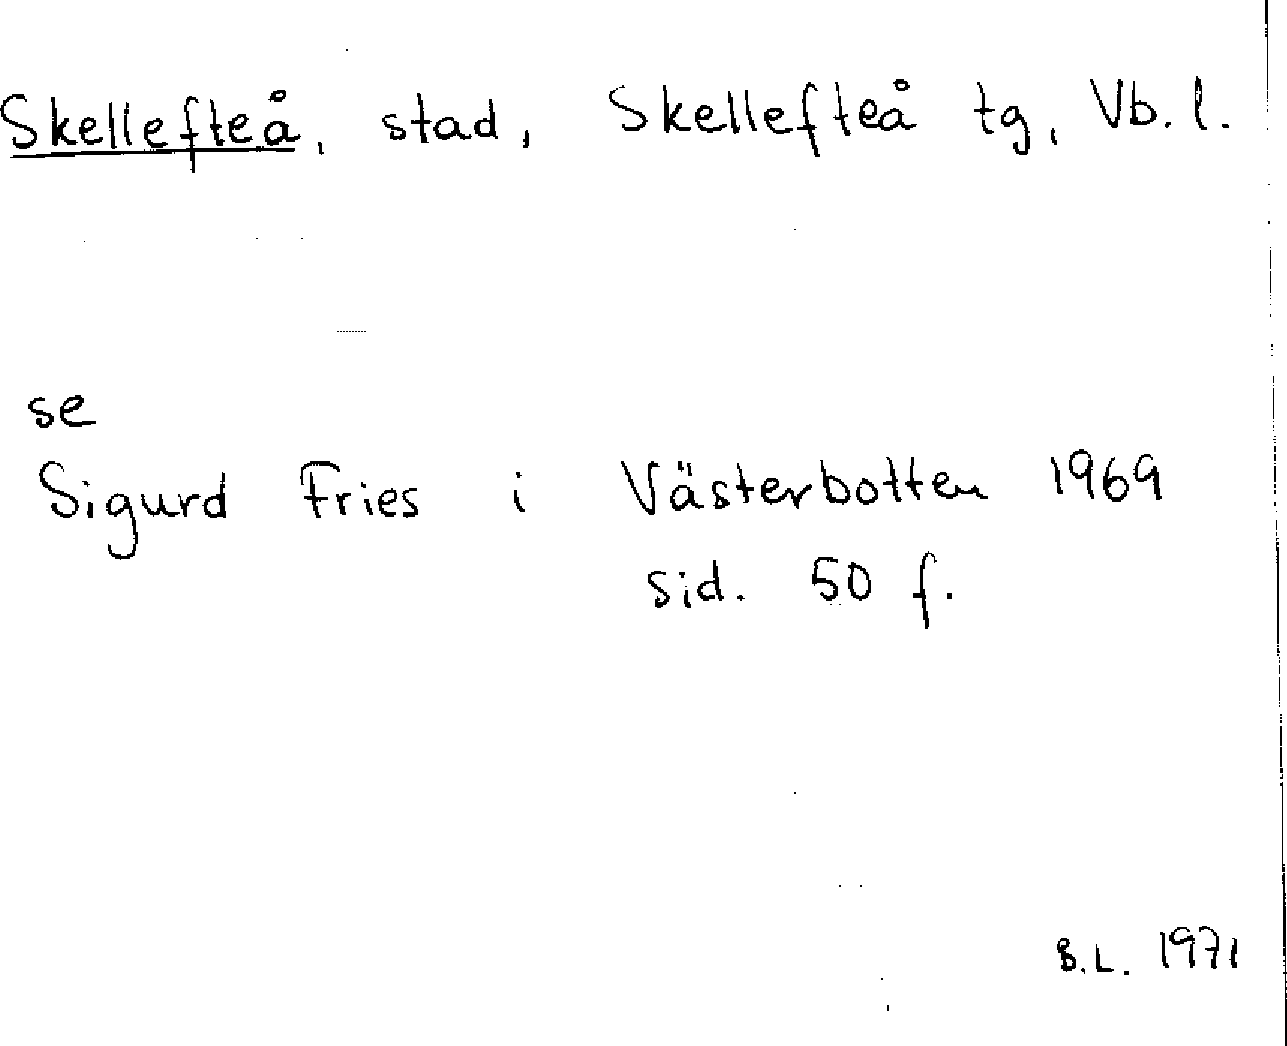 Skellefteå, stad, Skellefteå tg, Vb. l.
se
Sigurd Fries i Västerbotten 1969
sid. 50 f.
B.L. 1971